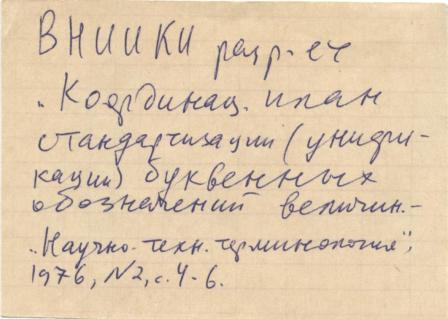 ВНИИКИ разр-ет
„Координац. план
стандартизации (унифи-
кации) буквенных
обозначений величин.-
„Научно-техн. терминология",
1976, N2, с. 4-6.